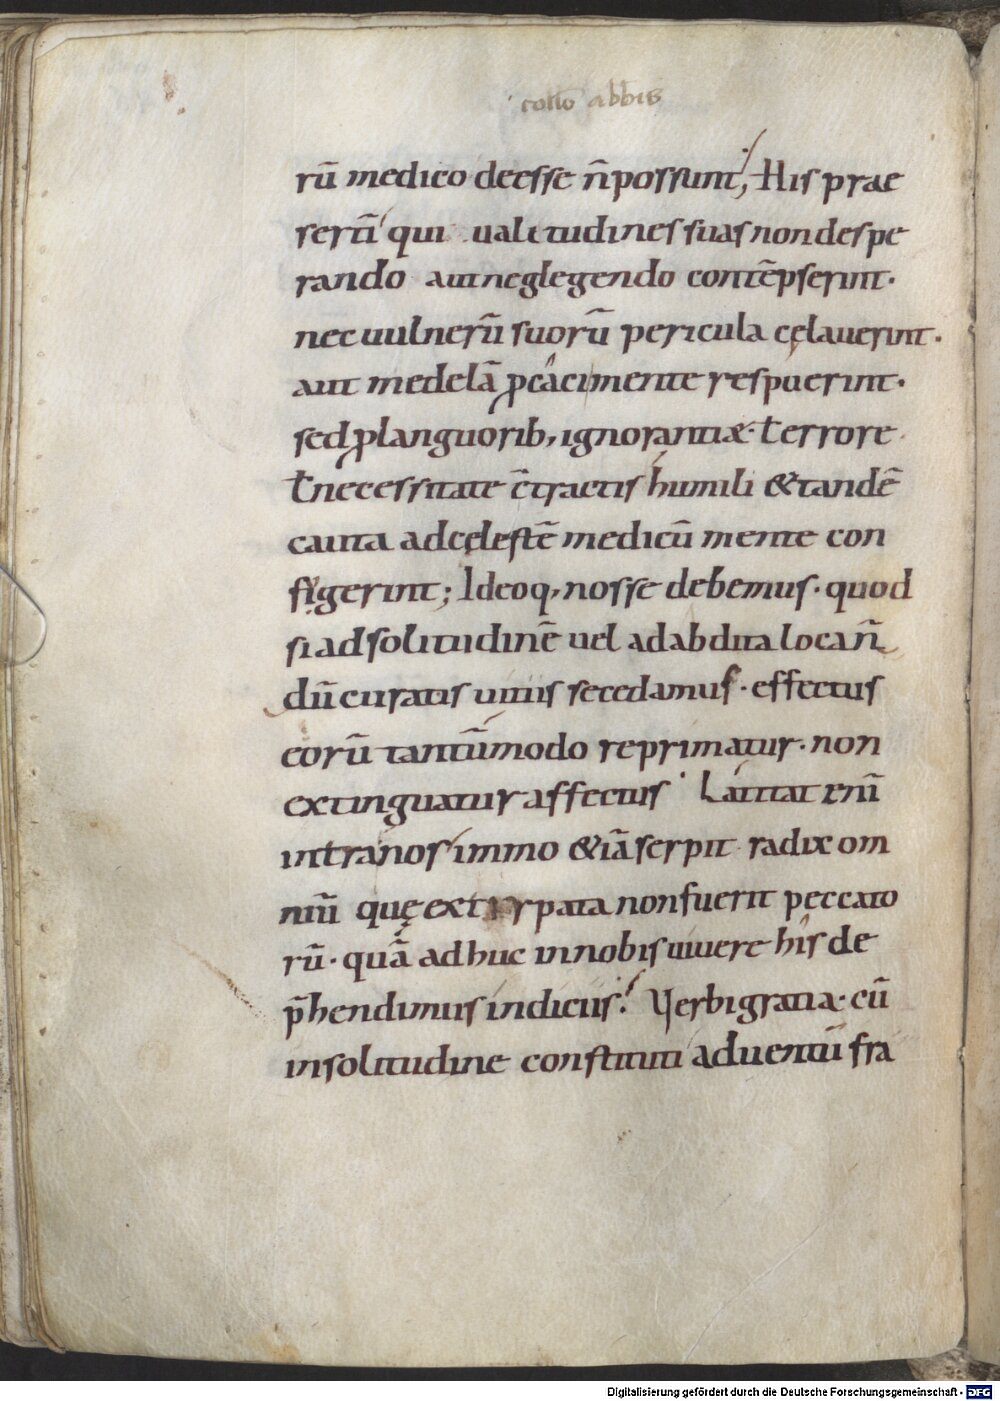 collo abbis
rū medico deesse n̄possunt; His prae
sertī qui ualitudines suas non despe
rando aut neglegendo contēpserint·
nec uulnerū suorū pericula cęlauerint·
aut medelā ꝓcaci mente respuerint·
sed ꝓ languorib; ignorantiæ· ƚ errore
ƚ necessitate c̄tractis humili & tandē
cauta ad cęlestē medicū mente con
figerint; Ideoq; nosse debemus· quod
si ad solitudinē uel ad abdita loca n̄
dū curatis uitiis secedamus· effectus
eorū tantūmodo reprimatur· non
extinguatur affectus· Latitat enī
intra nos immo & iā serpit radix om
niū quę extyrpata non fuerit peccato
rū· quā adhuc in nobis uiuere his de
p̄hendimus indiciis: Verbi gratia· cū
in solitudine constituti aduentū fra
Digitalisierung gefördert durch die Deutsche Forschungsgemeinschaft - DFG